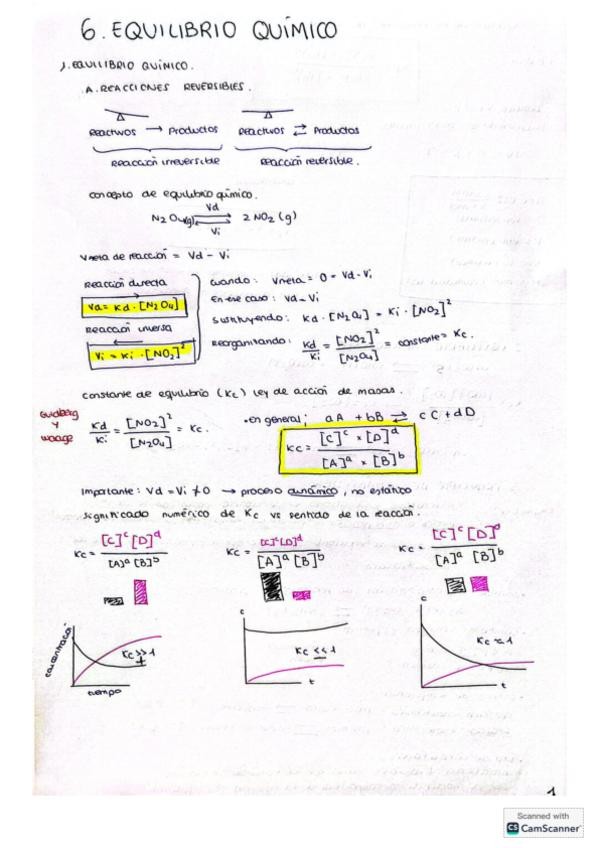 6. EQUILIBRIO QUÍMICO
1. EQUILIBRIO QUÍMICO.
A. REACCIONES REVERSIBLES.
Reactivos → Productos   Reactivos ⇄ Productos
Reacción irreversible   Reacción reversible.
concepto de equilibrio químico.
Vd
N2O4(g) ⇄ 2 NO2 (g)
Vi
Vneta de reacción = Vd - Vi
Reacción directa
Vd = Kd · [N2O4]
Reacción inversa
Vi = Ki · [NO2]²
cuando: Vneta = 0 = Vd - Vi
En ese caso: Vd = Vi
Sustituyendo: Kd · [N2O4] = Ki · [NO2]²
Reorganizando: Kd/Ki = [NO2]²/[N2O4] = constante = Kc.
constante de equilibrio (Kc) ley de acción de masas.
Guldberg
y
Waage
Kd/Ki = [NO2]²/[N2O4] = Kc.
• en general; aA + bB ⇄ cC + dD
Kc = [C]ᶜ × [D]ᵈ / [A]ᵃ × [B]ᵇ
Importante: Vd = Vi ≠ 0 → proceso dinámico, no estático
Significado numérico de Kc vs sentido de la reacción.
Kc = [C]ᶜ [D]ᵈ / [A]ᵃ [B]ᵇ   Kc = [C]ᶜ [D]ᵈ / [A]ᵃ [B]ᵇ   Kc = [C]ᶜ [D]ᵈ / [A]ᵃ [B]ᵇ
concentración
Kc >> 1
tiempo
c
Kc << 1
t
c
Kc ≈ 1
t
1
Scanned with
CS CamScanner